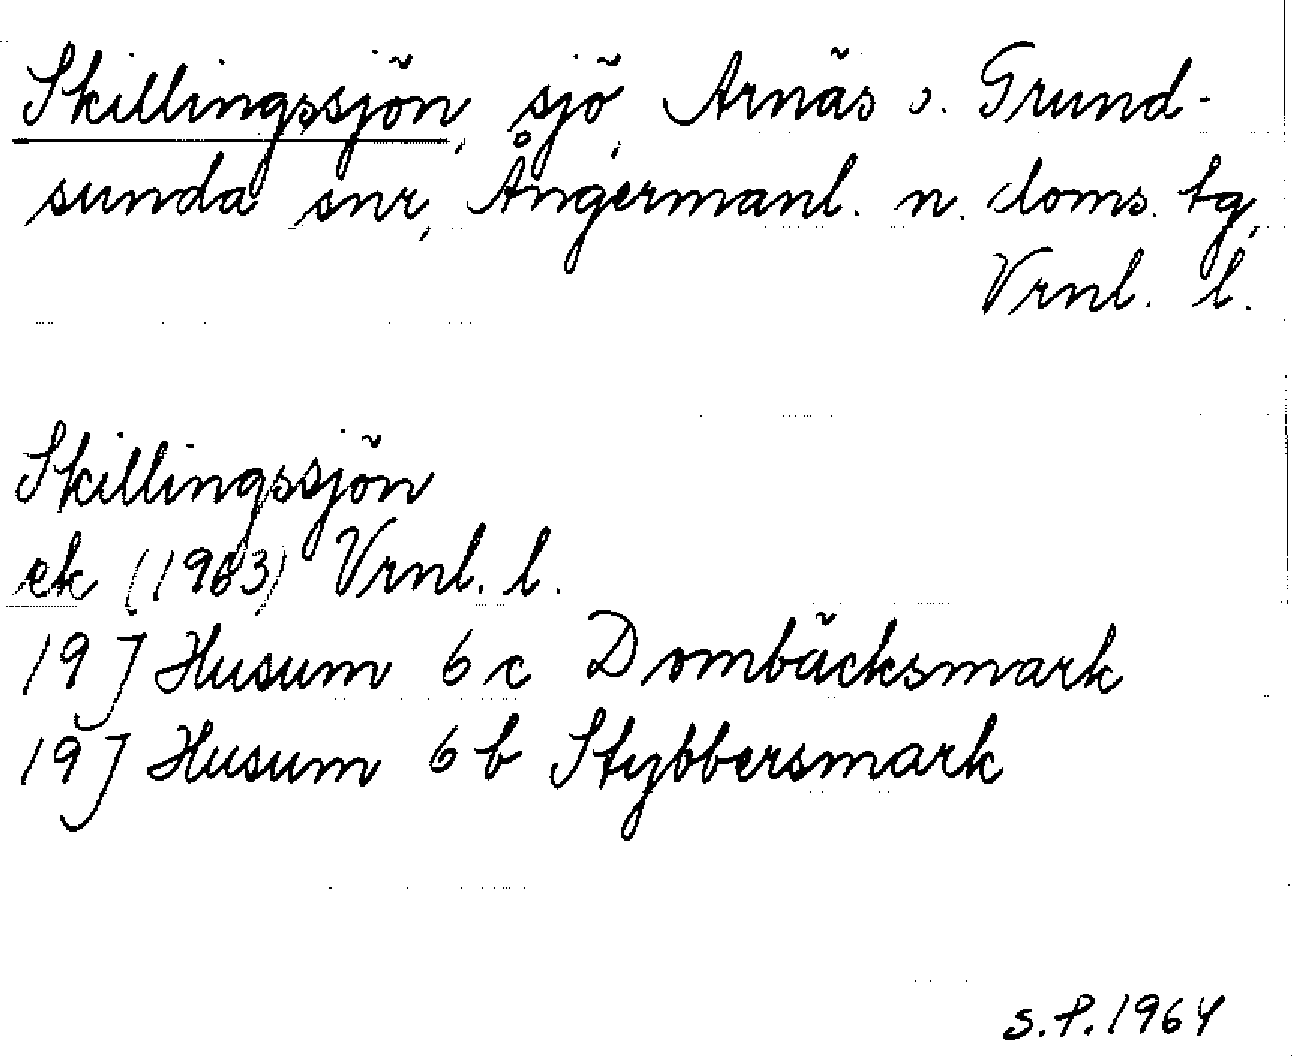 Skillingssjön, sjö, Arnäs o. Grund-
sunda snr, Ångermanl. n. doms. tg,
Vrnl. l.
Skillingssjön
ek (1963) Vrnl. l.
19 J Husum 6 c Dombäcksmark
19 J Husum 6 b Stybbersmark
S.P. 1964